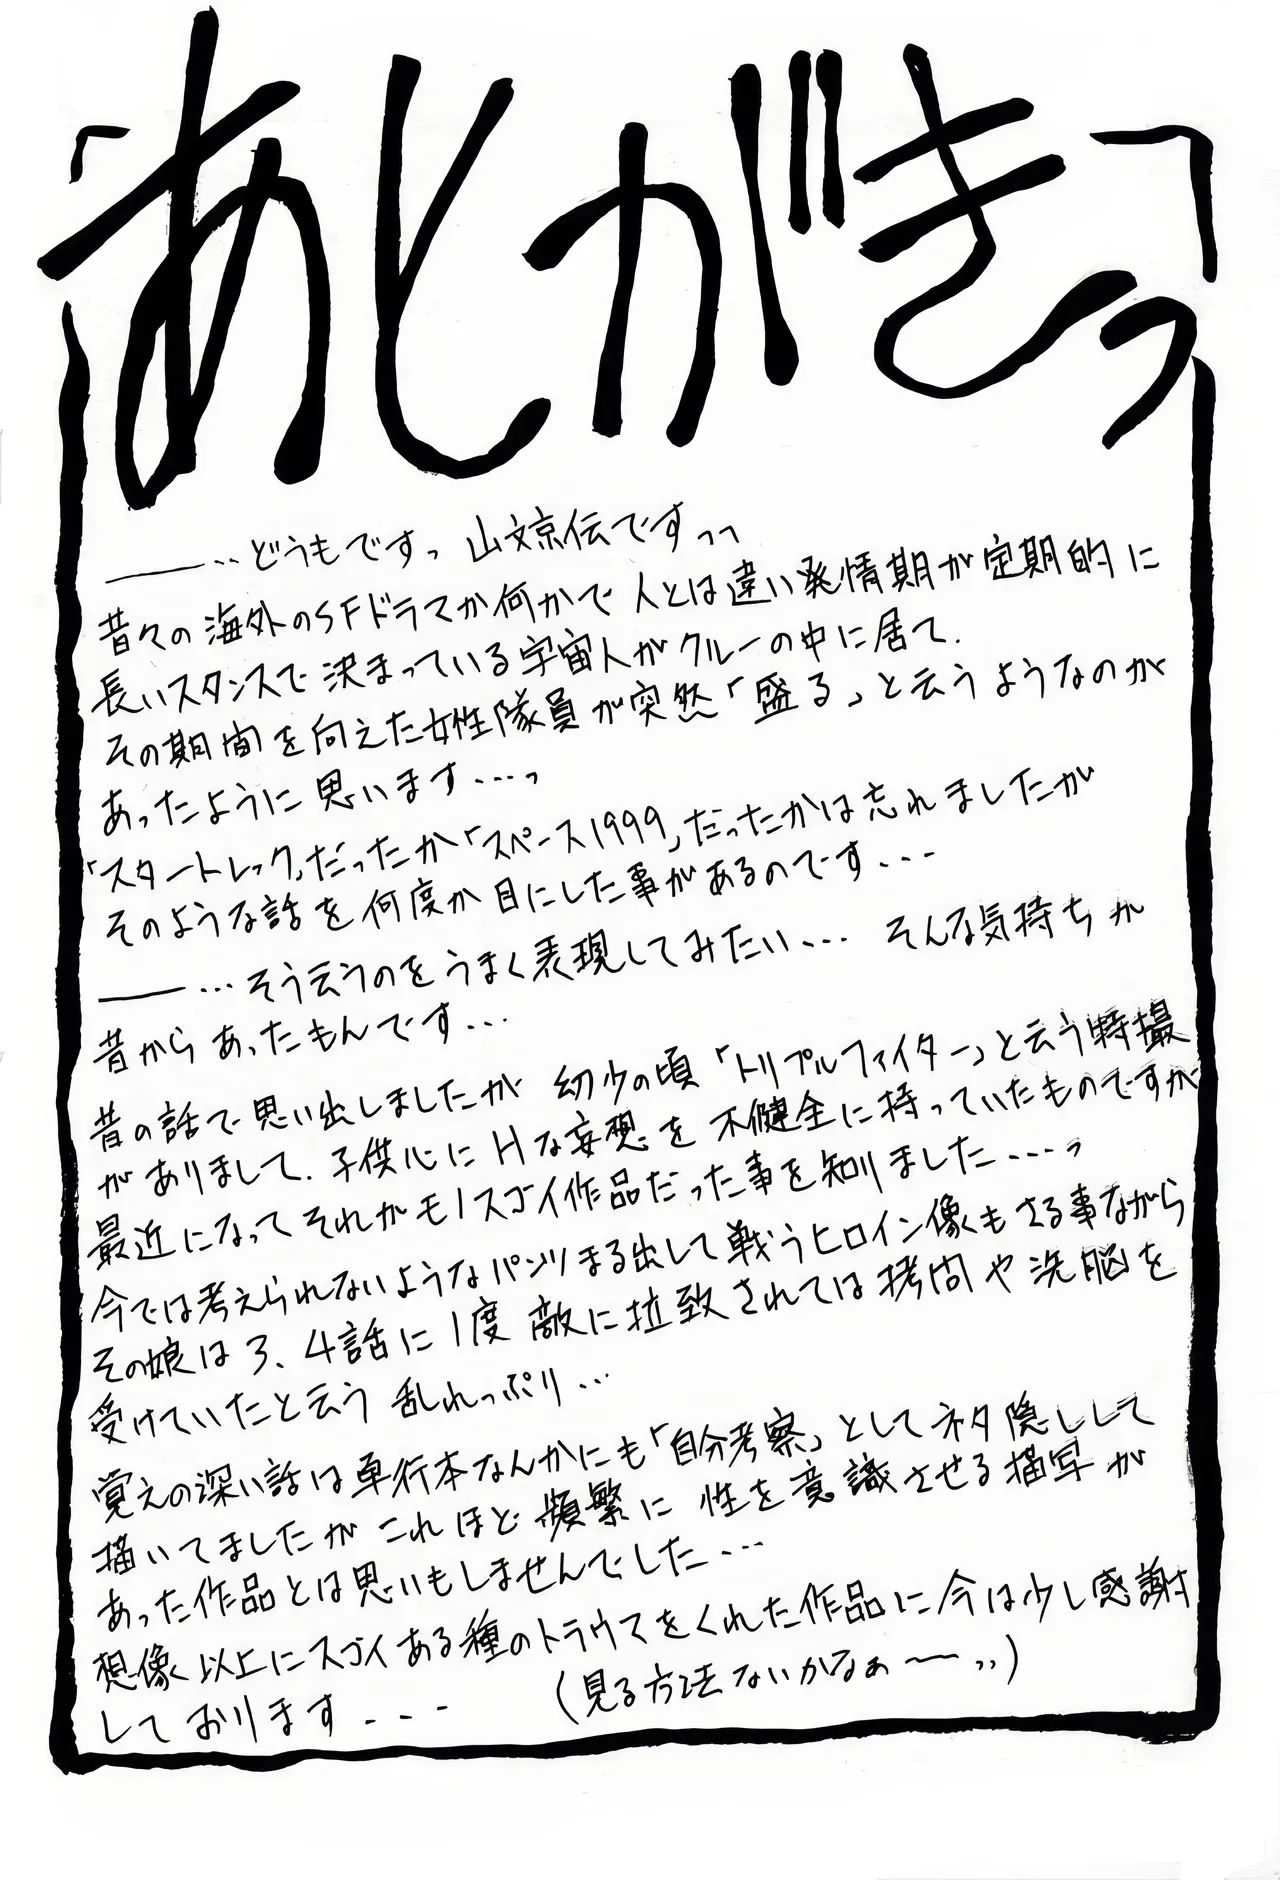 あとがきっ
――‥どうもです。山文京伝ですっっ
昔々の海外のSFドラマか何かで人とは違い発情期が定期的に
長いスタンスで決まっている宇宙人がクルーの中に居て、
その期間を向えた女性隊員が突然「盛る」と云うようなのが
あったように思います・・・。
「スタートレック」だったか「スペース1999」だったかは忘れましたが
そのような話を何度か目にした事があるのです・・・
――…そう云うのをうまく表現してみたい・・・ そんな気持ちが
昔からあったもんです・・・
昔の話で思い出しましたが 幼少の頃「トリプルファイター」と云う特撮
がありまして、子供心にHな妄想を不健全に持っていたものですが
最近になってそれがモノスゴイ作品だった事を知りました・・・っ
今では考えられないようなパンツまる出しして戦うヒロイン像もさる事ながら
その娘は3、4話に1度敵に拉致されては拷問や洗脳を
受けていたと云う乱れっぷり・・・
覚えの深い話は単行本なんかにも「自分考察」としてネタ隠しして
描いてましたが これほど頻繁に 性を意識させる描写が
あった作品とは思いもしませんでした・・・
想像以上にスゴイある種のトラウマをくれた作品に今は少し感謝
しております・・・ (見る方法ないかなぁ〜っっ)